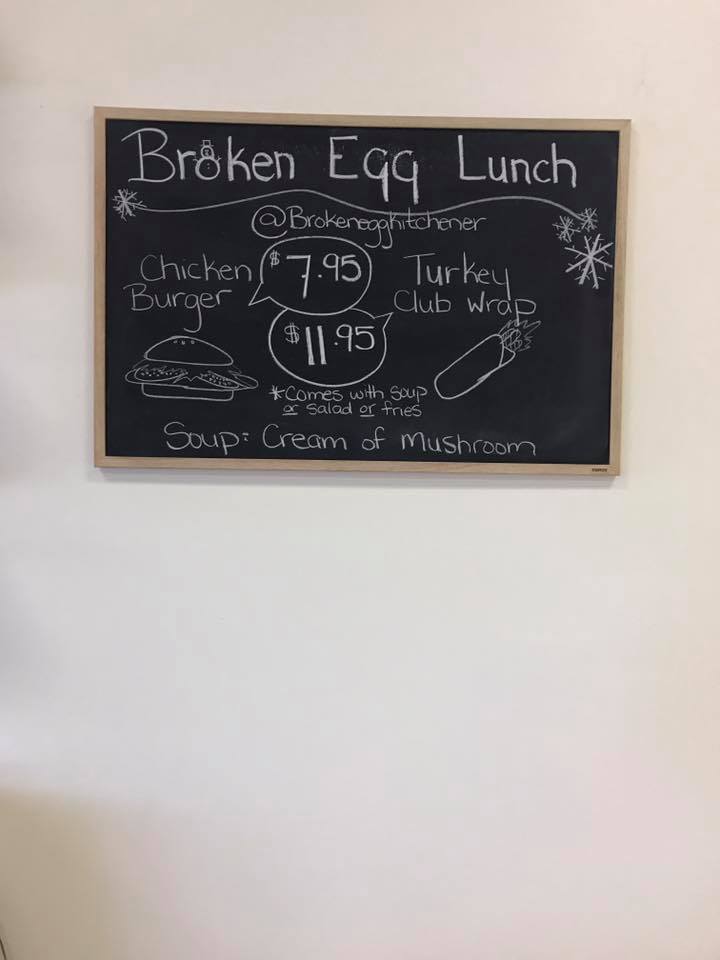 Broken Egg Lunch
@Brokeneggkitchener
Chicken Burger
$7.95
Turkey Club Wrap
$11.95
*Comes with soup
or salad or fries
Soup: Cream of Mushroom